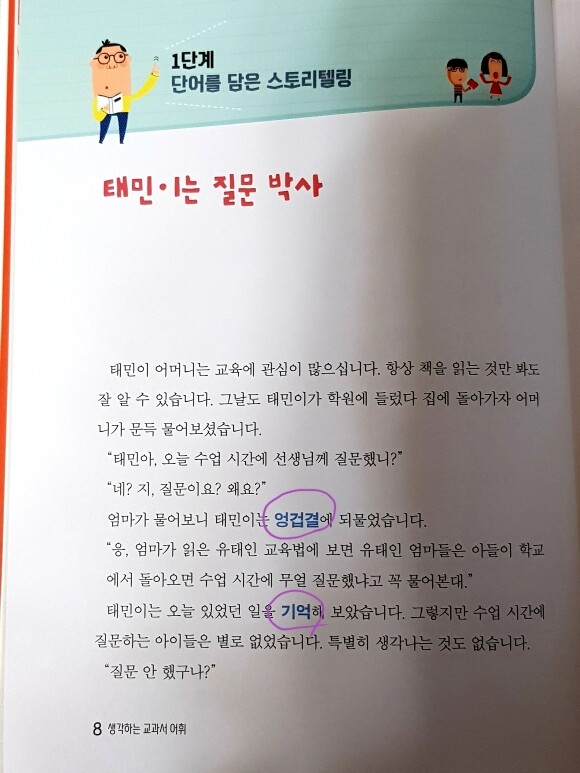 1단계
단어를 담은 스토리텔링
태민이는 질문 박사
태민이 어머니는 교육에 관심이 많으십니다. 항상 책을 읽는 것만 봐도
잘 알 수 있습니다. 그날도 태민이가 학원에 들렀다 집에 돌아가자 어머
니가 문득 물어보셨습니다.
“태민아, 오늘 수업 시간에 선생님께 질문했니?”
“네? 지, 질문이요? 왜요?”
엄마가 물어보니 태민이는 엉겁결에 되물었습니다.
“응, 엄마가 읽은 유태인 교육법에 보면 유태인 엄마들은 아들이 학교
에서 돌아오면 수업 시간에 무얼 질문했냐고 꼭 물어본대.”
태민이는 오늘 있었던 일을 기억해 보았습니다. 그렇지만 수업 시간에
질문하는 아이들은 별로 없었습니다. 특별히 생각나는 것도 없습니다.
“질문 안 했구나?”
8 생각하는 교과서 어휘